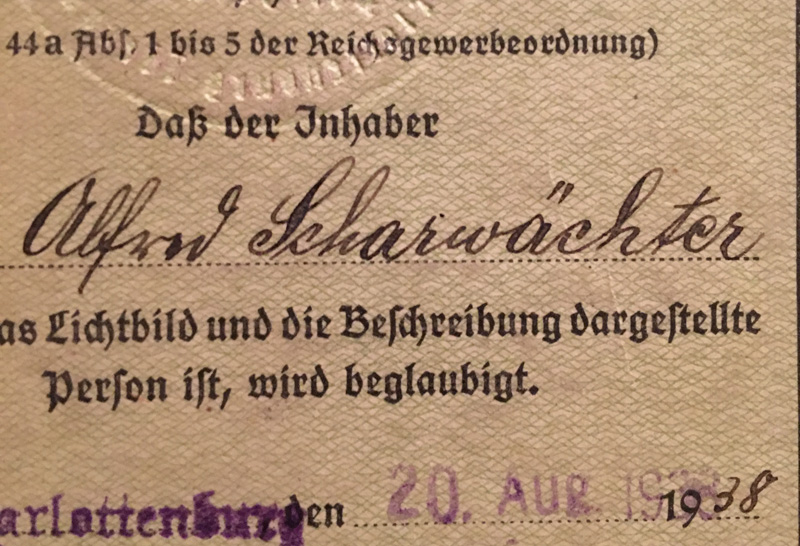 44a Abs. 1 bis 5 der Reichsgewerbeordnung)
Daß der Inhaber
Alfred Scharwächter
as Lichtbild und die Beschreibung dargestellte
Person ist, wird beglaubigt.
arlottenburg, den 20. AUG. 1938